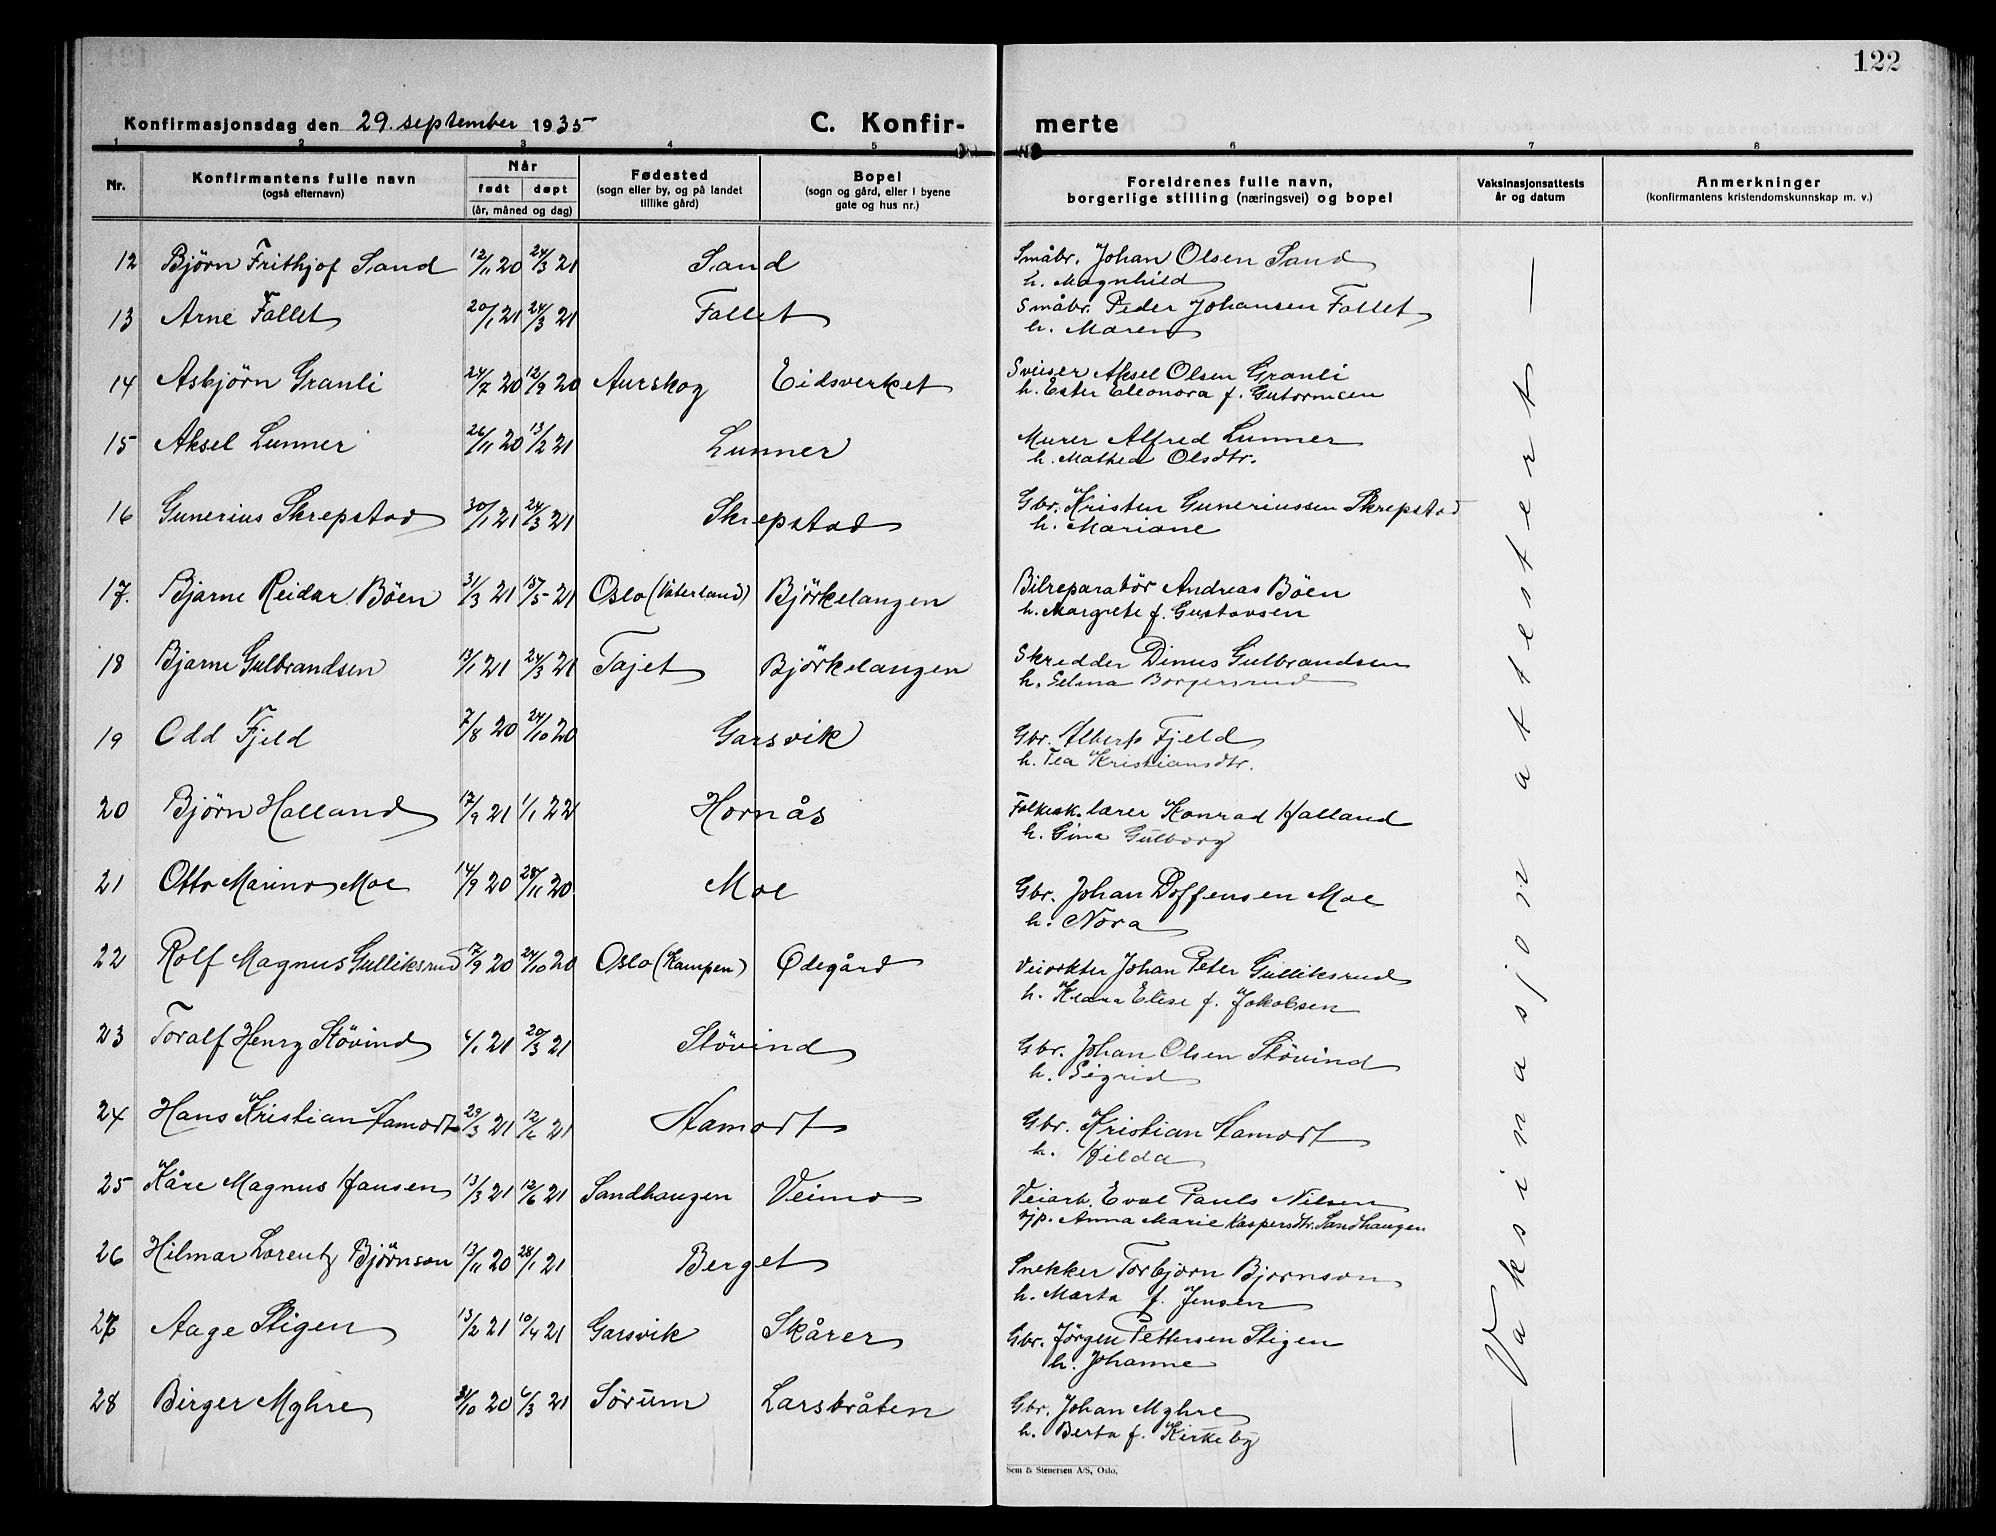 122
Konfirmasjonsdag den 29. september 1935 C. Konfir- merte
1 2 3 4 5 6 7 8
Nr. Konfirmantens fulle navn (også efternavn) Når født døpt (år, måned og dag) Fødested (sogn eller by, og på landet tillike gård) Bopel (sogn og gård, eller i byene gate og hus nr.) Foreldrenes fulle navn, borgerlige stilling (næringsvei) og bopel Vaksinasjonsattests år og datum Anmerkninger (konfirmantens kristendomskunnskap m. v.)
12 Björn Frithjof Sand 12/11 20 24/3 21 Sand Småbr. Johan Olsen Sand
h. Magnhild
13 Arne Fallet 20/1 21 24/3 21 Fallet Småbr. Peder Johansen Fallet
h. Maren
14 Asbjörn Granli 24/7 20 12/9 20 Aurskog Eidsverket Sveiser Aksel Olsen Granli
h. Ester Eleonora f. Gutormsen
15 Aksel Lunner 26/11 20 13/2 21 Lunner Murer Alfred Lunner
h. Mathea Olsdtr.
16 Gunerius Skrepstad 30/1 21 24/3 21 Skrepstad Gbr. Kristen Guneriussen Skrepstad
h. Mariane
17. Bjarne Reidar Böen 31/3 21 15/5 21 Oslo (Vaterland) Björkelangen Bilreparatör Andreas Böen
h. Margrete f. Gustavsen
18 Bjarne Gulbrandsen 13/1 21 24/3 21 Tajet Björkelangen Skredder Dinus Gulbrandsen
h. Selma Borgersrud
19 Odd Fjeld 7/8 20 24/10 20 Garsvik Gbr. Albert Fjeld
h. Tea Kristiansdtr.
20 Björn Halland 17/9 21 1/1 22 Hornås Folkesk. lærer Konrad Halland
h. Gina Gulborg
21 Otto Marino Moe 14/9 20 28/11 20 Moe Gbr. Johan Doffensen Moe
h. Nora
22 Rolf Magnus Gulliksrud 17/9 20 24/10 20 Oslo (Kampen) Ödegård Veivokter Johan Peter Gulliksrud
h. Klara Elise f. Jakobsen
23 Toralf Henry Stövind 6/1 21 20/3 21 Stövind Gbr. Johan Olsen Stövind
h. Sigrid
24 Hans Kristian Hamodt 29/3 21 12/6 21 Hamodt Gbr. Kristian Hamodt
h. Hilda
25 Kåre Magnus Hansen 13/3 21 12/6 21 Sandhaugen Veimo Veiarb. Eval Pauls Nilsen
h. Anna Marie Kaspersdtr. Sandhaugen
26 Hilmar Lorentz Björnson 13/11 20 28/1 21 Berget Snekker Torbjörn Bjornson
h. Marta f. Jensen
27 Aage Stigen 13/2 21 10/4 21 Garsvik Skårer Gbr. Jörgen Pettersen Stigen
h. Johanne
28 Birger Myhre 31/10 20 6/3 21 Sörum Larsbråten Gbr. Johan Myhre
h. Berta f. Kirkeby
— Vaksinasjon attestert —
Sem & Stenersen A/S, Oslo.